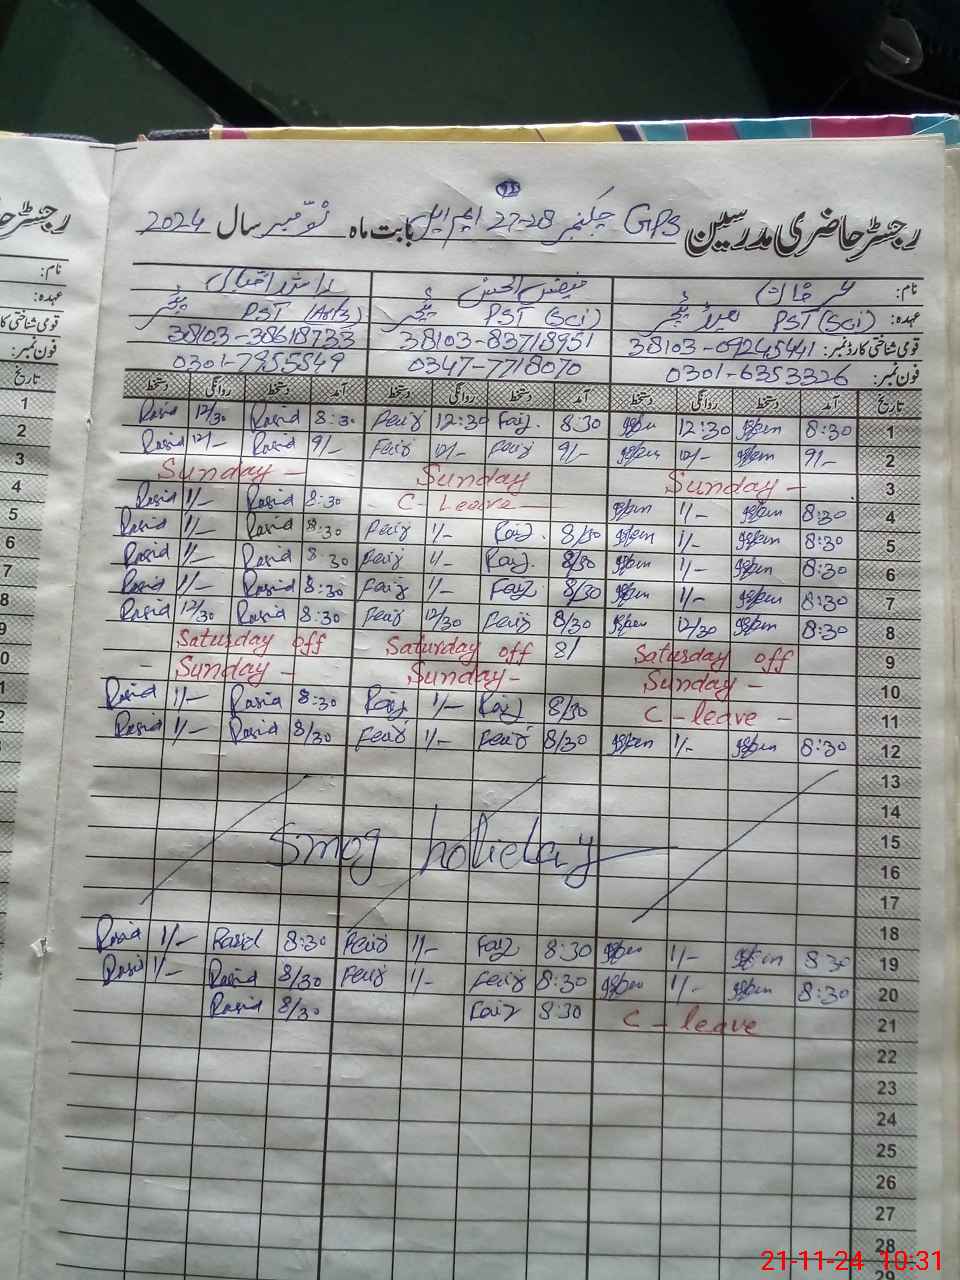 رجسٹر حاضری مدرسین GPS چک نمبر 27-28 ایم ایل بابت ماہ نومبر سال 2024
نام: عمر حیات فیض الحسن راشد اقبال
عہدہ: PST (Sci) ہیڈ ٹیچر PST (Sci) ٹیچر PST (Arts) ٹیچر
قومی شناختی کارڈ نمبر: 38103-09245441 38103-83718951 38103-38618733
فون نمبر: 0301-6353326 0347-7718070 0301-7955549
تاریخ آمد دستخط روانگی دستخط آمد دستخط روانگی دستخط آمد دستخط روانگی دستخط
1 8:30 12:30 8:30 Faiz 12:30 Faiz 8:30 Rasid 12/30 Rasid
2 9/- 12/- 9/- Faiz 12/- Faiz 9/- Rasid 12/- Rasid
3 Sunday - Sunday Sunday -
4 8:30 1/- C - Leave - 8:30 Rasid 1/- Rasid
5 8:30 1/- 8/30 Faiz 1/- Faiz 8:30 Rasid 1/- Rasid
6 8:30 1/- 8/30 Faiz 1/- Faiz 8:30 Rasid 1/- Rasid
7 8:30 1/- 8/30 Faiz 1/- Faiz 8:30 Rasid 1/- Rasid
8 8:30 12/30 8/30 Faiz 12/30 Faiz 8:30 Rasid 12/30 Rasid
9 Saturday off 8/ Saturday off Saturday off
10 Sunday - Sunday - Sunday -
11 C - leave - 8/30 Faiz 1/- Faiz 8:30 Rasid 1/- Rasid
12 8:30 1/- 8/30 Faiz 1/- Faiz 8/30 Rasid 1/- Rasid
13
14
15 Smog holiday
16
17
18
19 8:30 1/- 8:30 Faiz 1/- Faiz 8:30 Rasid 1/- Rasid
20 8:30 1/- 8:30 Faiz 1/- Faiz 8/30 Rasid 1/- Rasid
21 C - leave 8:30 Faiz 8/30 Rasid
22
23
24
25
26
27
28
29
21-11-24 10:31